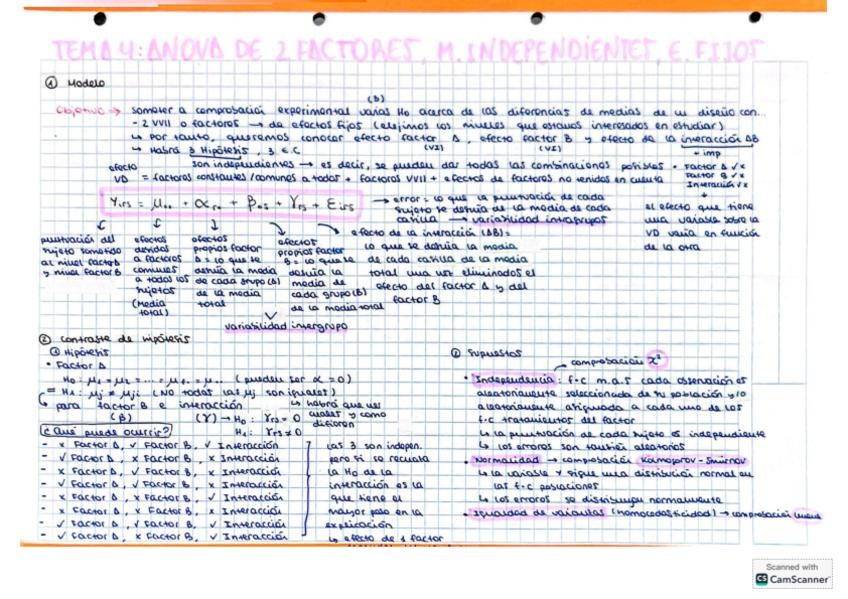 TEMA 4: ANOVA DE 2 FACTORES, M. INDEPENDIENTES, E. FIJOS
① Modelo
(3)
Objetivo → someter a comprobación experimental varias Ho acerca de las diferencias de medias de un diseño con...
- 2 VVII o factores → de efectos fijos (elejimos los niveles que estamos interesados en estudiar)
↳ Por tanto, queremos conocer efecto factor A, efecto factor B y efecto de la interacción AB
(VI) (VI)
↳ Habrá 3 Hipótesis, 3 EC
+ imp
son independientes → es decir, se pueden dar todas las combinaciones posibles
• Factor A √ x
Factor B √ x
Interacción √ x
efecto VD = factores constantes/comunes a todos + factores VVII + efectos de factores no tenidos en cuenta
Yirs = μ.. + αr. + β.s + γrs + εirs
→ error = lo que la puntuación de cada sujeto se desvía de la media de cada casilla → variabilidad intragrupos
el efecto que tiene una variable sobre la VD varía en función de la otra
puntuación del sujeto sometido al nivel factor A y nivel factor B
efectos debidos a factores comunes a todos los sujetos (Media total)
efectos propios factor A = lo que se desvía la media de cada grupo (A) de la media total
efectos propios factor B = lo que se desvía la media de cada grupo (B) de la media total
efecto de la interacción (AB) = lo que se desvía la media de cada casilla de la media total una vez eliminados el efecto del factor A y del factor B
variabilidad intergrupo
② Contraste de hipótesis
① Hipótesis
• Factor A
Ho: μ1 = μ2 = ... = μr. = μ.. (pueden ser α = 0)
H1: μj ≠ μj' (NO todas las μj son iguales)
↳ habrá que ver cuáles y como difieren
para factor B e interacción
(β) (γ) → Ho: γrs = 0
H1: γrs ≠ 0
¿Qué puede ocurrir?
- x Factor A, √ Factor B, √ Interacción
- √ Factor A, x Factor B, x Interacción
- x Factor A, √ Factor B, x Interacción
- x Factor A, x Factor B, √ Interacción
- x Factor A, x Factor B, x Interacción
- √ Factor A, √ Factor B, √ Interacción
- √ Factor A, x Factor B, √ Interacción
las 3 son indepen. pero si se rechaza la Ho de la interacción es la que tiene el mayor peso en la explicación
↳ efecto de 1 factor
② Supuestos
comprobación χ²
• Independencia: f·c m.a.s cada observación es aleatoriamente seleccionada de su población y/o aleatoriamente atribuida a cada uno de los f·c tratamientos del factor
↳ la puntuación de cada sujeto es independiente
↳ los errores son también aleatorios
• Normalidad → comprobación Komogorov-Smirnov
↳ la variable Y sigue una distribución normal en las f·c poblaciones
↳ los errores se distribuyen normalmente
• Igualdad de varianzas (homocedasticidad) → comprobación
Scanned with
CS CamScanner